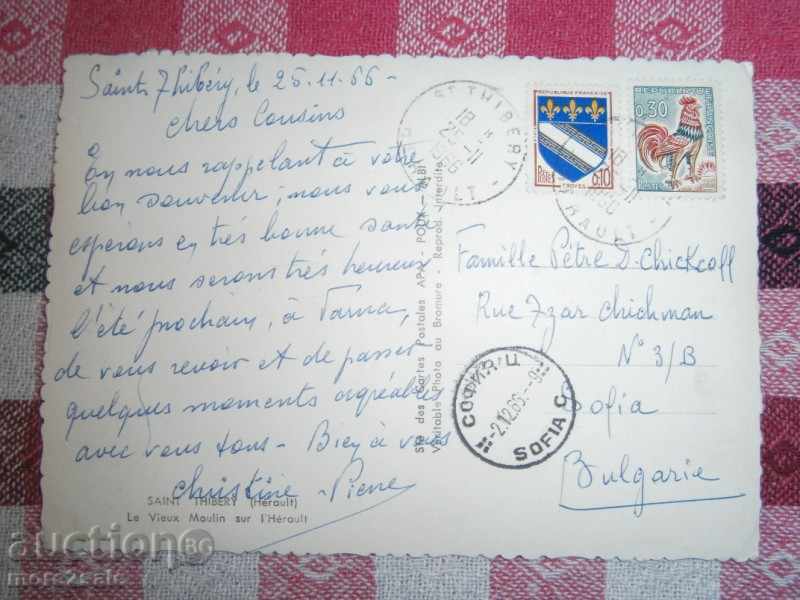 Saint Thibéry, le 25.11.66 -
Chers Cousins
En nous rappelant à votre
bon souvenir, nous vous
espérons en très bonne santé
et nous serons très heureux
l'été prochain, à Varna,
de vous revoir et de passer
quelques moments agréables
avec vous tous - Bien à vous
Christine - Pierre
SAINT THIBERY (Hérault)
Le Vieux Moulin sur l'Hérault
Sté des Cartes Postales APA - POUX - ALBI
Véritable Photo au Bromure - Reprod. Interdite
ST THIBERY
18 H
25 - 11
1966
HERAULT
REPUBLIQUE FRANÇAISE
POSTES
0,10
TROYES
0,30
18
11
1966
RAULT
Famille Pètre D. Chickcoff
Rue Tzar Chichman
N° 3/B
Sofia
Bulgarie
СОФИЯ Ц
-2.12.66.-9
SOFIA C
auction BG
more2sale